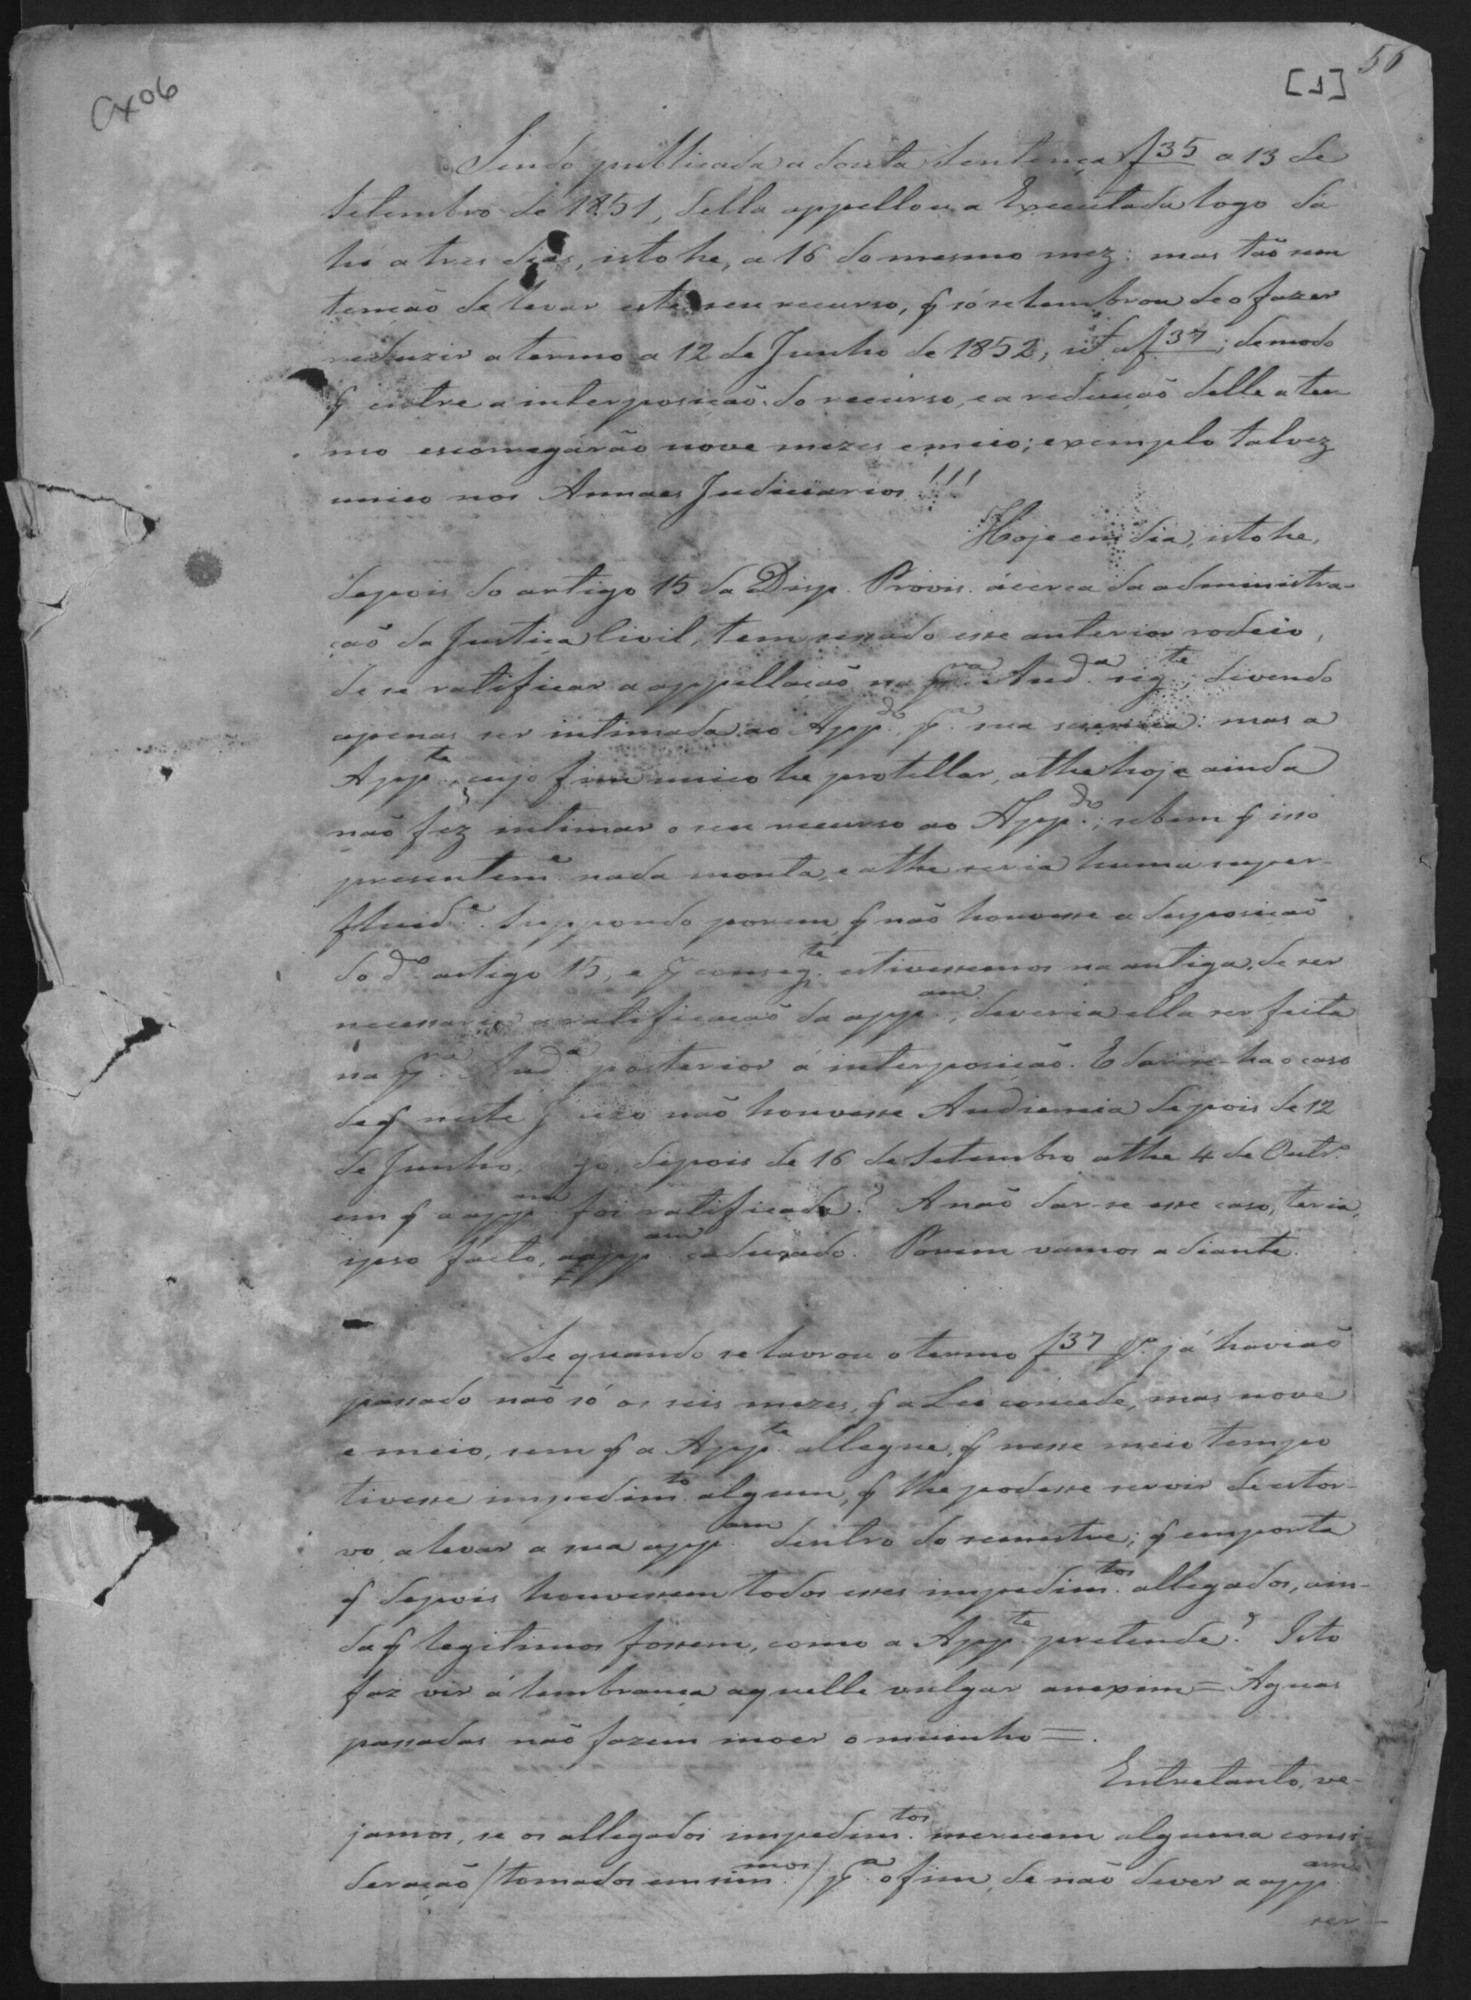 Cx06
[1] 56
Sendo publicada a douta Sentença f 35 a 13 de
Setembro de 1851, della appellou a Executada logo da
hi a tres dias, isto he, a 16 do mesmo mez: mas tão sem
tenção de levar este seu recurso, q só se lembrou de o fazer
reduzir a termo a 12 de Junho de 1852, ut f 37; de modo
q entre a interposição do recurso, e a reducção delle a ter
mo escorregarão nove mezes e meio; exemplo talvez
unico nos Annaes Judiciarios!!!
Hoje em dia, isto he,
depois do artigo 15 da Disp. Provis. ácerca da administra-
ção da Justiça Civil, tem cessado esse anterior rodeio,
de se ratificar a appellação na pra. Auda. sigte, devendo
apenas ser intimada ao Appdo. pa. sua sciencia: mas a
Appte, cujo fim unico he protellar, athe hoje ainda
não fez intimar o seu recurso ao Appdo.; se bem q isso
presenteme. nada monta, e athe seria huma super-
fluide. Suppondo porem q não houvesse a disposição
do do. artigo 15, e p consegte. estivessemos na antiga, de ser
necessaria a ratificação da appam., deveria ella ser feita
na pra. Auda. posterior á interposição. E dar-se-ha o caso
de q neste Juizo não houvesse Audiencia depois de 12
de Junho, depois de 16 de Setembro athe 4 de Outro.
em q a appam. foi ratificada? A não dar-se esse caso, teria,
ipso facto, a appam. caducado. Porem vamos adiante.
Se quando se lavrou o termo f 37 já havião
passado não só os seis mezes, q a Lei concede, mas nove
e meio, sem q a Appte. allegue, q nesse meio tempo
tivesse impedimto. algum, q lhe podesse servir de estor-
vo, a levar a sua appam. dentro do semestre; q emporta
q depois houvessem todos esses impedimtos. allegados, ain-
da q legitimos fossem, como a Appte. pretende? Isto
faz vir á lembrança aquelle vulgar anexim = Aguas
passadas não fazem moer o muinho =.
Entretanto, ve-
jamos, se os allegados impedimtos. merecem alguma consi-
deração / tomados em si mmos. / pa. o fim, de não dever a appam.
ser-